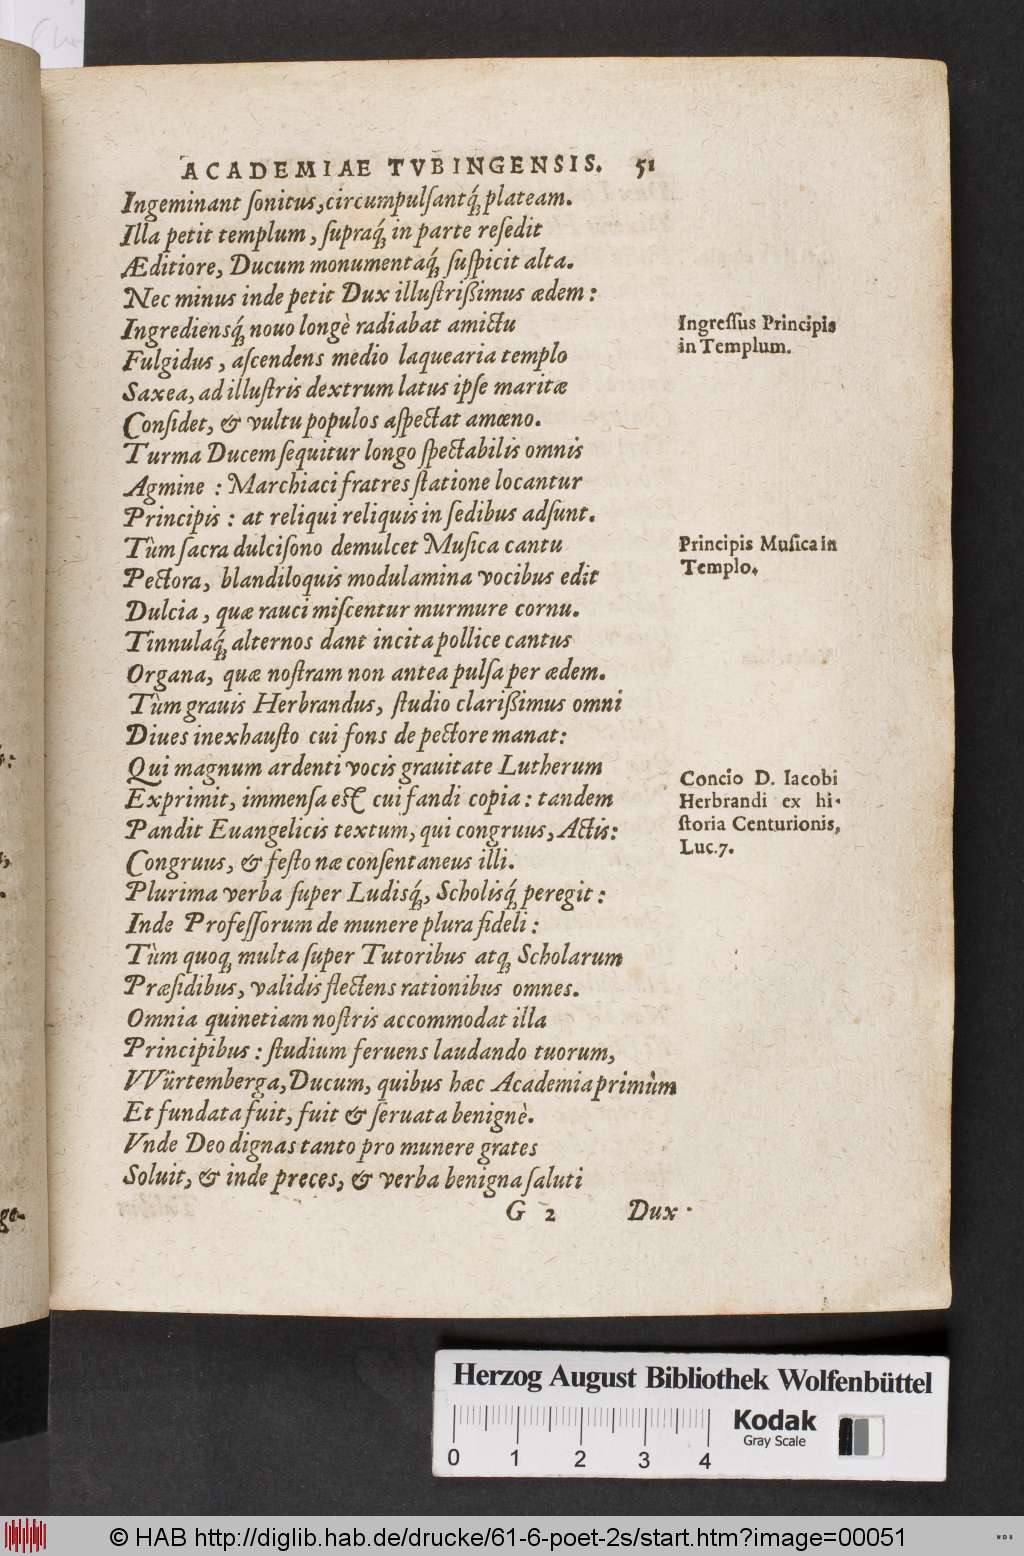 ACADEMIAE TVBINGENSIS. 51
Ingeminant ſonitus, circumpulſantq́ꝫ plateam.
Illa petit templum, ſupraq́ꝫ in parte reſedit
Æditiore, Ducum monumentaq́ꝫ ſuſpicit alta.
Nec minus inde petit Dux illuſtrißimus ædem:
Ingrediensq́ꝫ nouo longè radiabat amictu
Fulgidus, aſcendens medio laquearia templo
Saxea, ad illuſtris dextrum latus ipſe maritæ
Conſidet, & vultu populos aſpectat amœno.
Turma Ducem ſequitur longo ſpectabilis omnis
Agmine: Marchiaci fratres ſtatione locantur
Principis: at reliqui reliquis in ſedibus adſunt.
Tùm ſacra dulciſono demulcet Muſica cantu
Pectora, blandiloquis modulamina vocibus edit
Dulcia, quæ rauci miſcentur murmure cornu.
Tinnulaq́ꝫ alternos dant incita pollice cantus
Organa, quæ noſtram non antea pulſa per ædem.
Tùm grauis Herbrandus, ſtudio clarißimus omni
Diues inexhauſto cui fons de pectore manat:
Qui magnum ardenti vocis grauitate Lutherum
Exprimit, immenſa eſt cui fandi copia: tandem
Pandit Euangelicis textum, qui congruus, Actis:
Congruus, & feſto næ conſentaneus illi.
Plurima verba ſuper Ludisq́ꝫ, Scholisq́ꝫ peregit:
Inde Profeſſorum de munere plura fideli:
Tùm quoqꝫ multa ſuper Tutoribus atqꝫ Scholarum
Præſidibus, validis flectens rationibus omnes.
Omnia quinetiam noſtris accommodat illa
Principibus: ſtudium feruens laudando tuorum,
VVürtemberga, Ducum, quibus hæc Academia primùm
Et fundata fuit, fuit & ſeruata benignè.
Vnde Deo dignas tanto pro munere grates
Soluit, & inde preces, & verba benigna ſaluti
G 2 Dux
Ingreſſus Principis
in Templum.
Principis Muſica in
Templo.
Concio D. Iacobi
Herbrandi ex hi-
ſtoria Centurionis,
Luc.7.
Herzog August Bibliothek Wolfenbüttel
Kodak
Gray Scale
0 1 2 3 4
© HAB http://diglib.hab.de/drucke/61-6-poet-2s/start.htm?image=00051